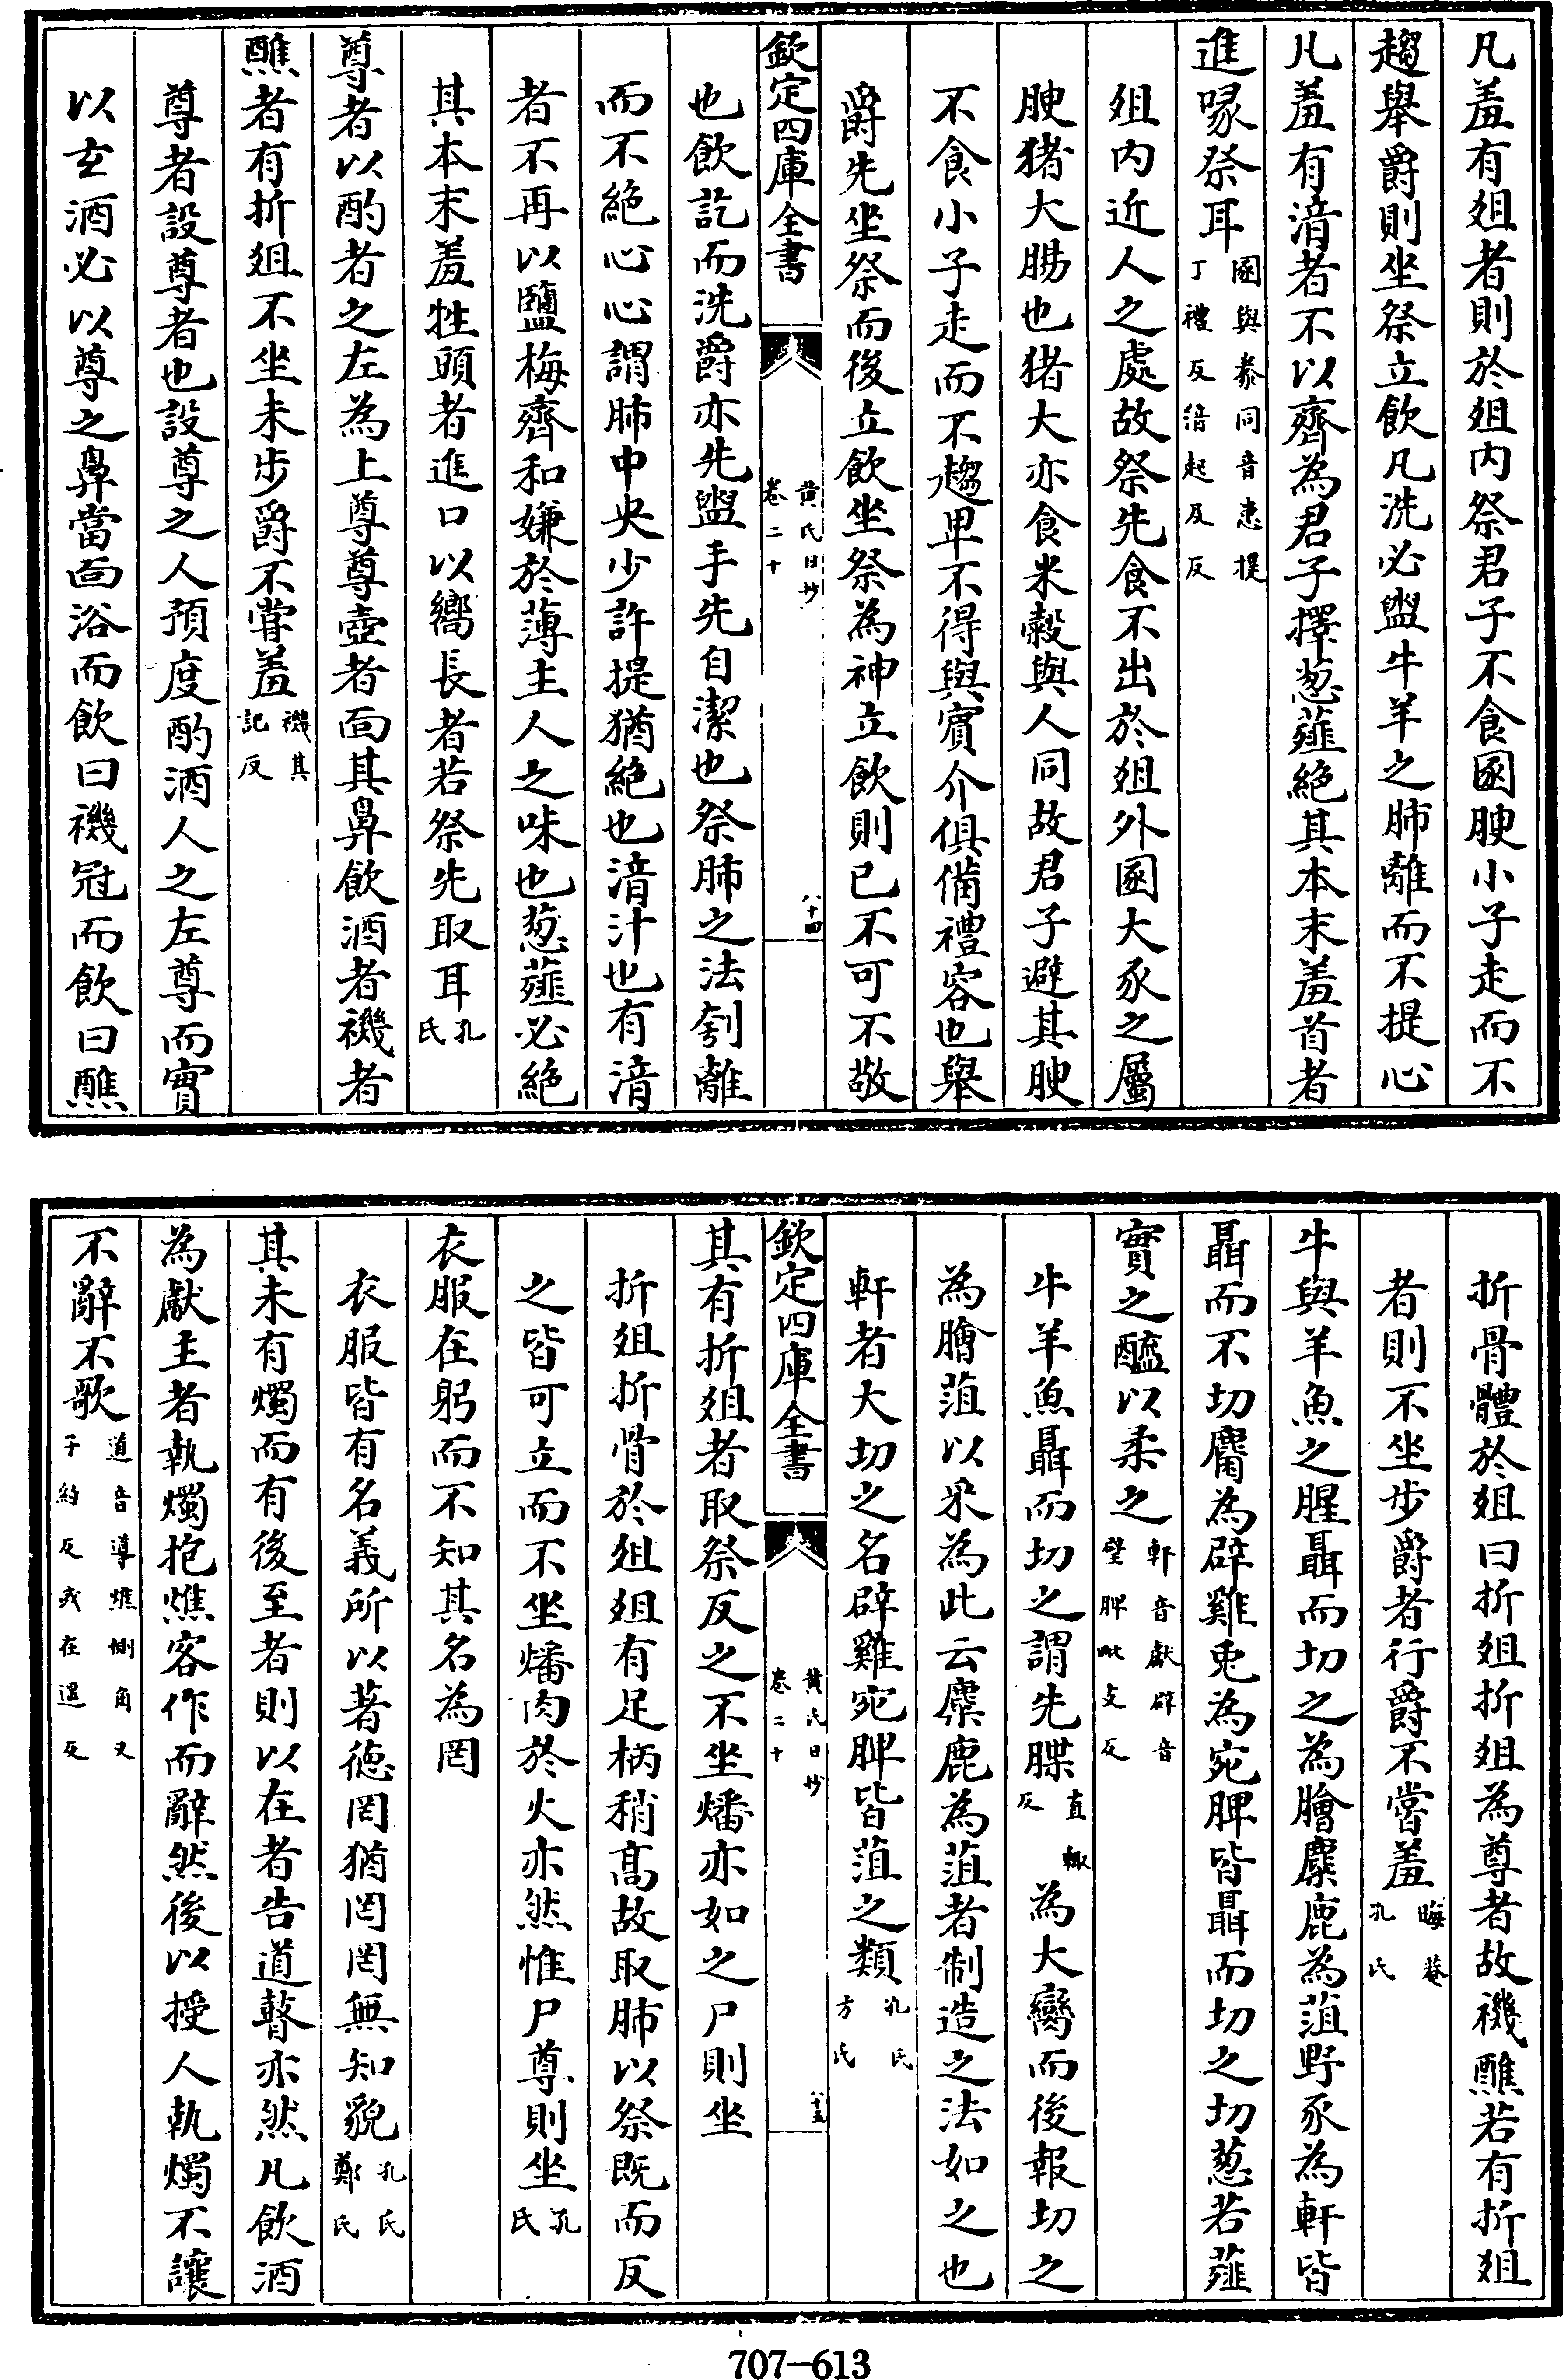 凡羞有爼者則於爼内祭君子不食圂腴小子走而不
趨舉爵則坐祭立飲凡洗必盥牛羊之肺離而不提心
凡羞有湆者不以齊為君子擇葱薤絶其本末羞首者
進喙祭耳圂與豢同音患提丁禮反湆起及反
爼内近人之處故祭先食不出於爼外圂犬豕之屬
腴猪犬腸也猪犬亦食米糓與人同故君子避其腴
不食小子走而不趨卑不得與賓介俱備禮容也舉
爵先坐祭而後立飲坐祭為神立飲則已不可不敬
欽定四庫全書 黄氏日抄卷二十 八十四
也飲訖而洗爵亦先盥手先自潔也祭肺之法刳離
而不絶心心謂肺中央少許提猶絶也湆汁也有湆
者不再以鹽梅齊和嫌於薄主人之味也葱薤必絶
其本末羞牲頭者進口以嚮長者若祭先取耳孔氏
尊者以酌者之左為上尊尊壺者面其鼻飲酒者禨者
醮者有折爼不坐未步爵不嘗羞禨其記反
尊者設尊者也設尊之人預度酌酒人之左尊而實
以玄酒必以尊之鼻當面浴而飲曰禨冠而飲曰醮
折骨體於爼曰折爼折爼為尊者故禨醮若有折爼
者則不坐步爵者行爵不嘗羞晦菴孔氏
牛與羊魚之腥聶而切之為膾麋鹿為菹野豕為軒皆
聶而不切麕為辟雞兎為宛脾皆聶而切之切葱若薤
實之醯以柔之軒音獻辟音壁脾毗支反
牛羊魚聶而切之謂先牒直輒反為大臠而後報切之
為膾菹以釆為此云麋鹿為菹者制造之法如之也
軒者大切之名辟雞宛脾皆菹之類孔氏方氏
欽定四庫全書 黄氏日抄卷二十 八十五
其有折爼者取祭反之不坐燔亦如之尸則坐
折爼折骨於爼爼有足柄稍髙故取肺以祭既而反
之皆可立而不坐燔肉於火亦然惟尸尊則坐孔氏
衣服在躬而不知其名為罔
衣服皆有名義所以著徳罔猶罔罔無知貌孔氏鄭氏
其未有燭而有後至者則以在者告道瞽亦然凡飲酒
為獻主者執燭抱燋客作而辭然後以授人執燭不讓
不辭不歌道音導燋側角又子約反或在遥反
707—613